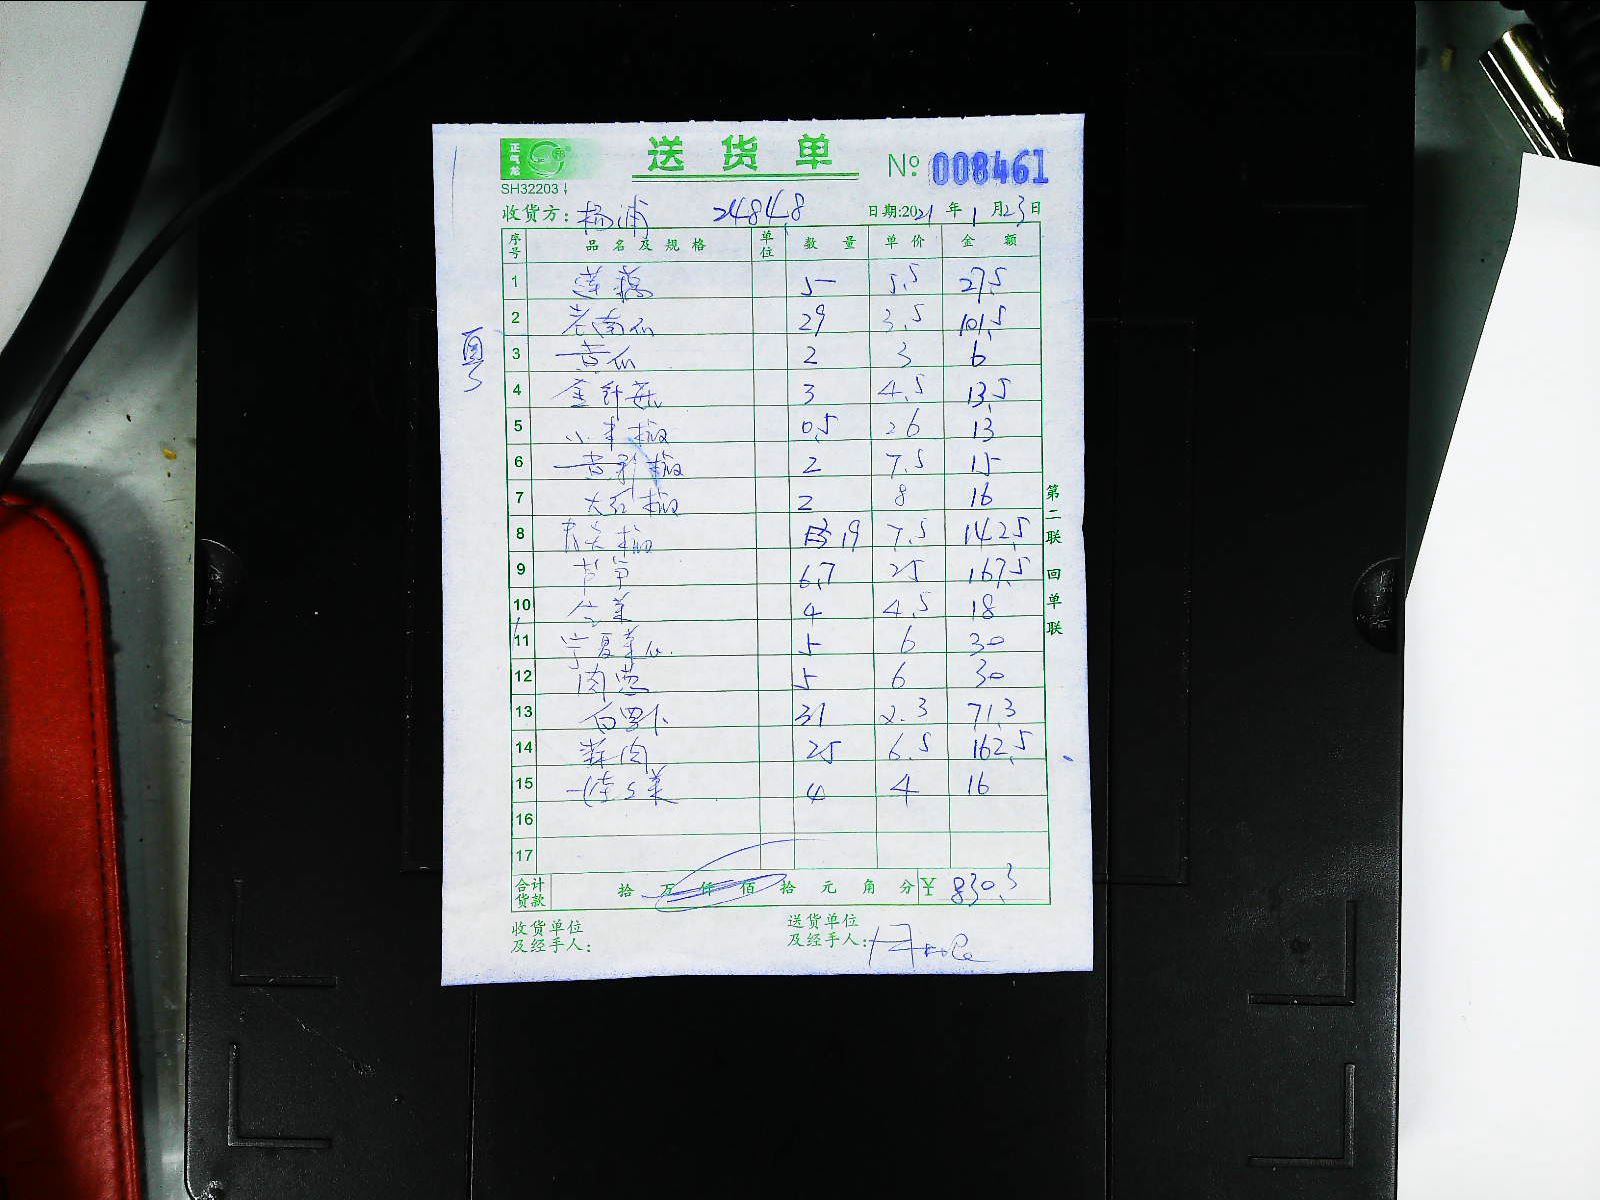 正气龙
送货单
№ 008461
SH32203
收货方: 杨浦 24848 日期:2021年1月23日
序号 品名及规格 单位 数量 单价 金额
1 莲藕 5 5.5 27.5
2 老南瓜 29 3.5 101.5
3 黄瓜 2 3 6
4 金针菇 3 4.5 13.5
5 小米椒 0.5 26 13
6 黄彩椒 2 7.5 15
7 大红椒 2 8 16
8 青尖椒 19 7.5 142.5
9 芦笋 6.7 25 167.5
10 生菜 4 4.5 18
11 宁夏菜心 5 6 30
12 肉葱 5 6 30
13 白罗卜 31 2.3 71.3
14 蒜肉 25 6.5 162.5
15 4 4 16
16
17
合计货款 拾 万 仟 佰 拾 元 角 分 ¥ 830.3
收货单位及经手人:
送货单位及经手人:
第二联 回单联